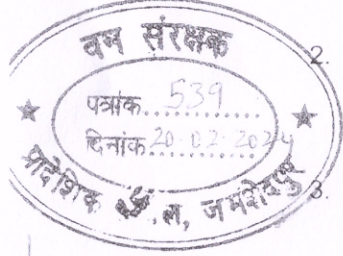 वन संरक्षक
2.
पत्रांक 539
दिनांक 20.02.2024
3.
प्रादेशिक अं.ल, जमशेदपुर